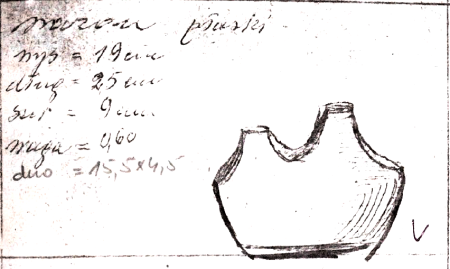 wazon płaski
wys = 19 cm
dług = 25 cm
szer = 9 cm
waga = 0,60
dno = 15,5x4,5
V